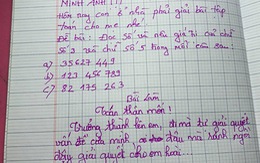 MINH ANH!!!
Hôm nay con ở nhà phải giải bài tập
toán cho mẹ nhé!
Đề bài: Đọc số và nêu giá trị của chữ
số 3 và chữ số 5 trong mỗi câu sau:
a) 35 627 449
b) 123 456 789
c) 82 175 263
Bài làm
Toán thân mến!
Trưởng thành lên em, đi mà tự giải quyết
vấn đề của mình đâu mà hành nghi
đây giải quyết cho em hoài...